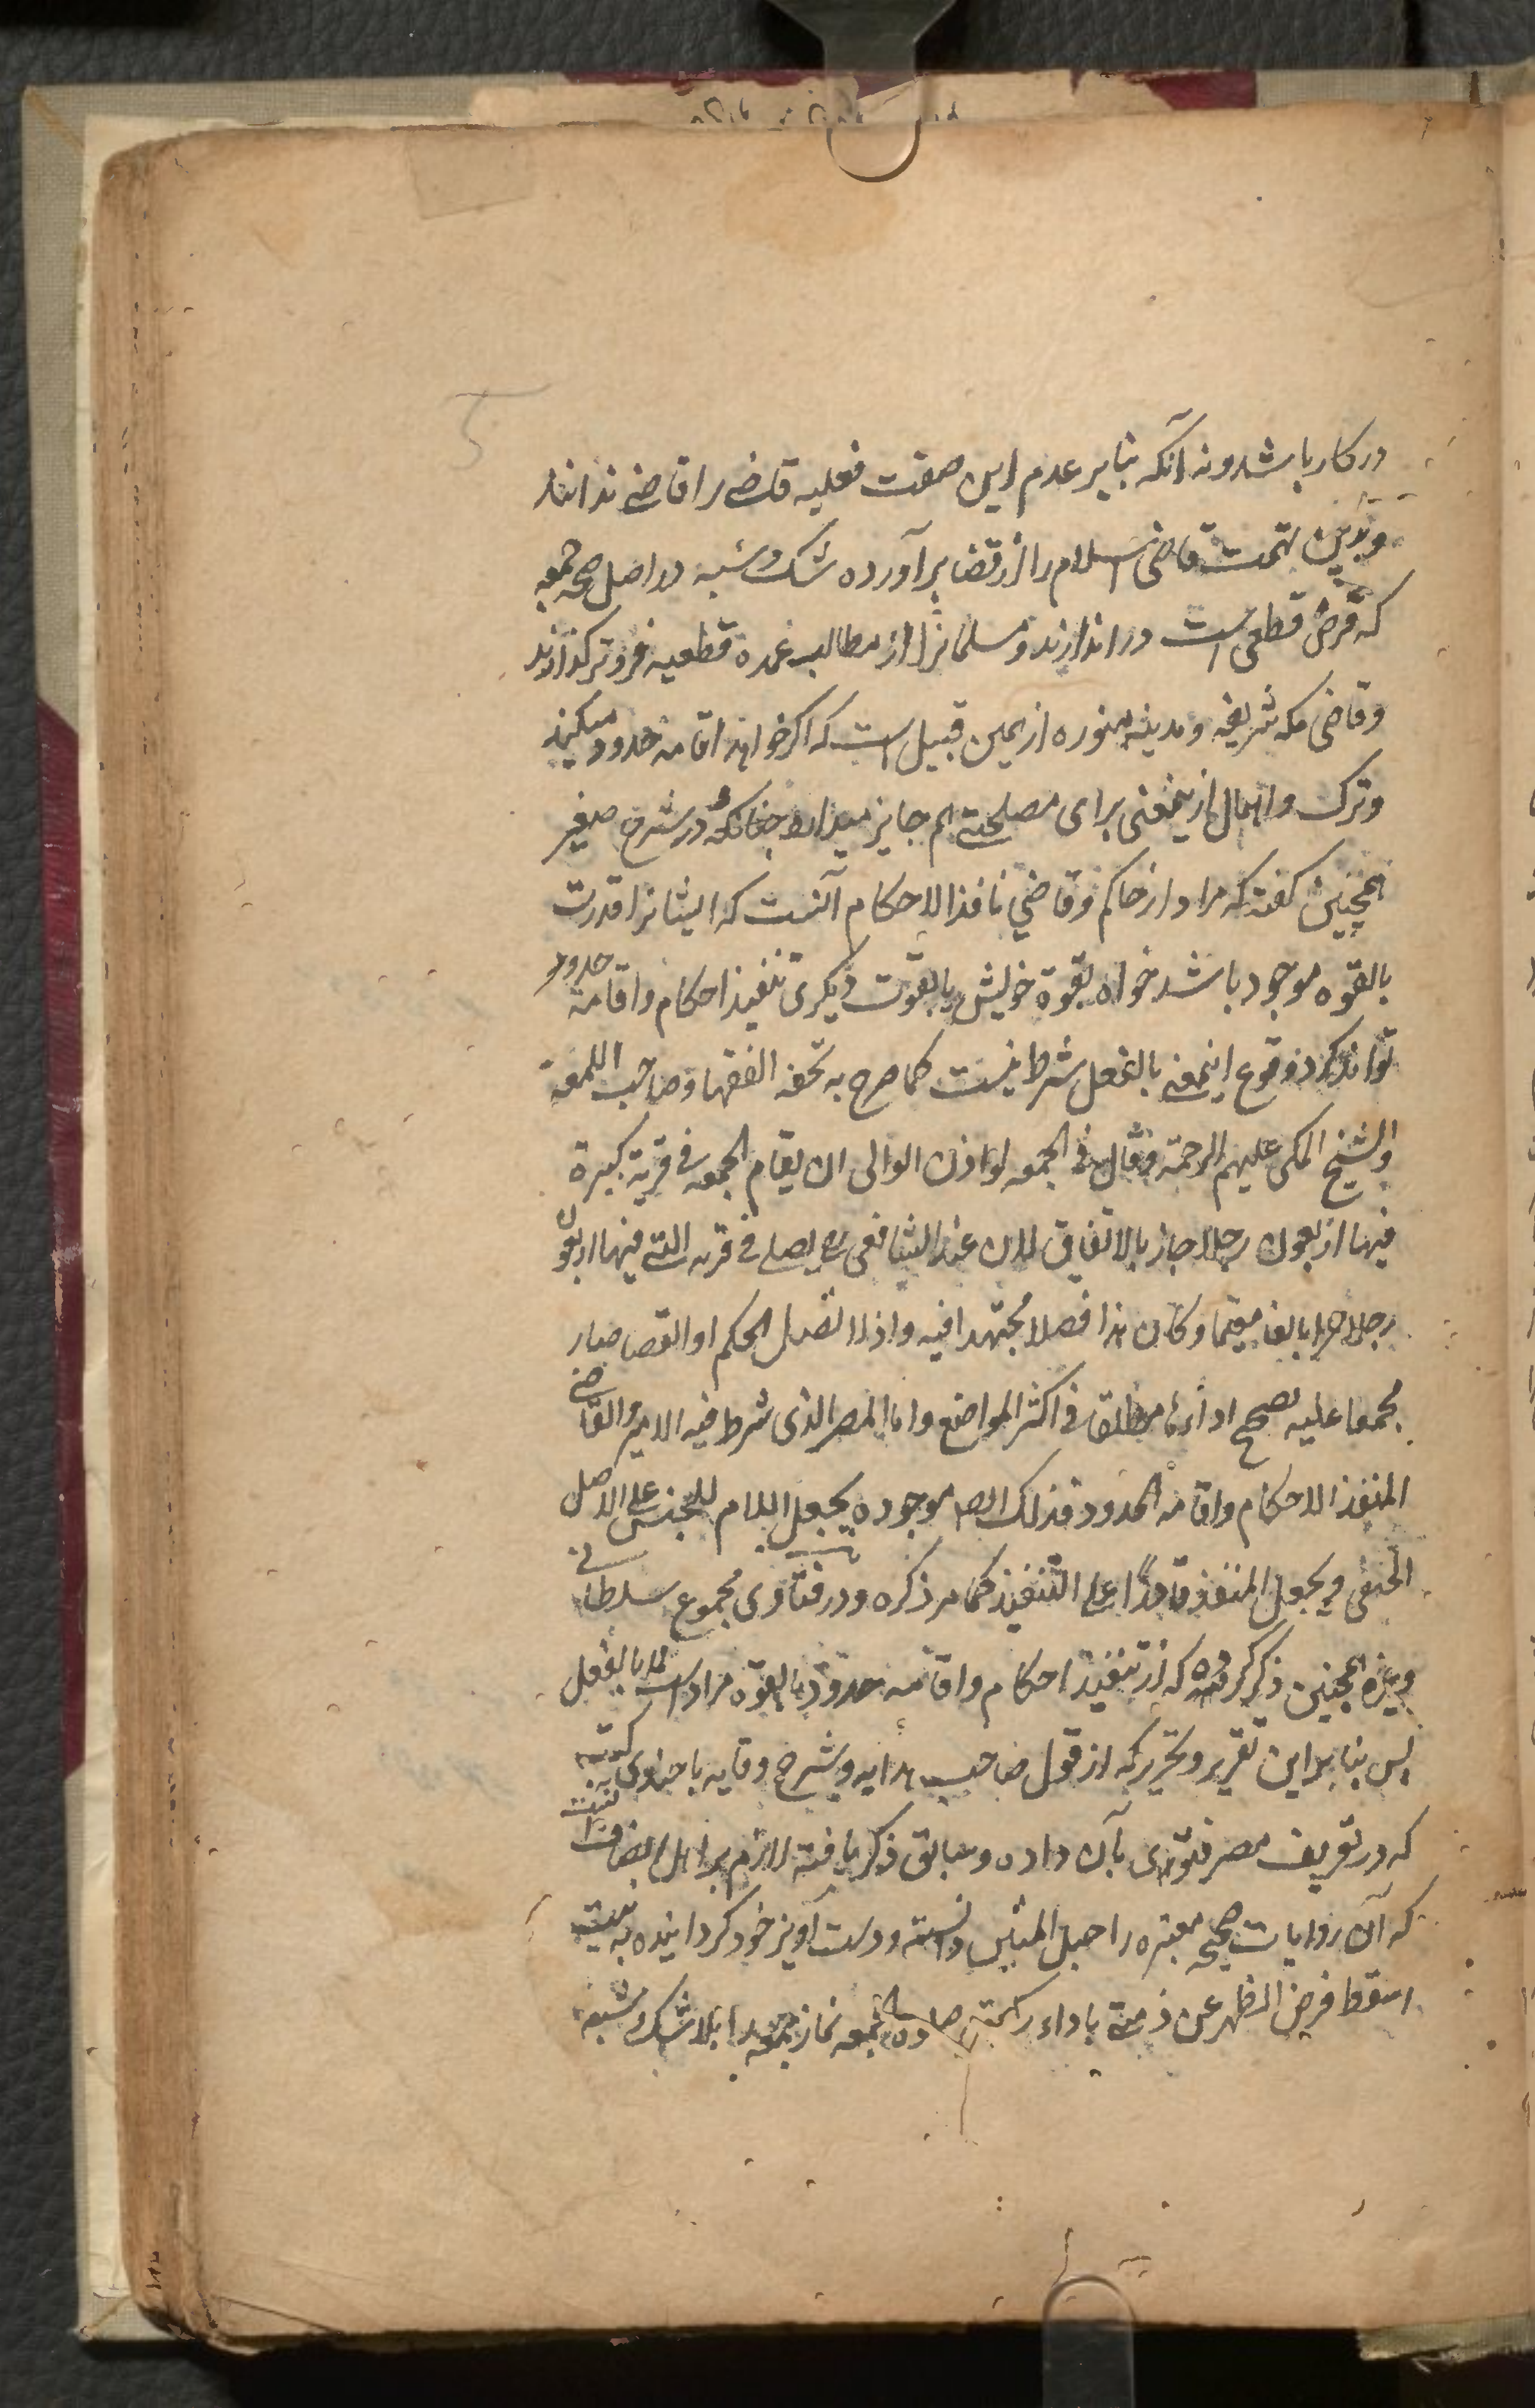 در کار باشد و نه آنکه بنابر عدم این صفت فعلیه قاضی را قاضی ندانند
و بدین تهمت قاضی اسلام را از قضا برآورده شک و شبه در اصل صحه جمعه
که فرض قطعی است در اندازند و مسلمانرا از مطالب عمده قطعیه فروتر گذارند
و قاضی مکه شریفه و مدینه منوره از همین قبیل است که اگر خواهند اقامه حدود میکنند
و ترک و اهمال ازینمعنی برای مصلحتی هم جایز میدارد چنانکه در شرح صغیر
همچنین گفته که مراد از حاکم و قاضی نافذ الاحکام آنست که ایشانرا قدرت
بالقوه موجود باشد خواه بقوة خویش یا بقوت دیگری تنفیذ احکام و اقامة حدود
توانند کرد وقوع اینمعنی بالفعل شرط نیست کما صرح به تحفه الفقها و صاحب اللمعة
والشیخ المکی علیهم الرحمة وقال فی الجمعه لو اذن الوالی ان یقام الجمعه فی قریة کبیرة
فیها اربعون رجلا جاز بالاتفاق لان عند الشافعی رح یصلی فی قریه التی فیها اربعون
رجلا حرا بالغا مقیما وکان هذا فصلا مجتهدا فیه واذا اتصل الحکم او القضا صار
مجمعا علیه تصح اداءها مطلقا فی اکثر المواضع واما المصر الذی شرط فیه الامیر والقاضی
المنفذ الاحکام واقامه الحدود فذلک ایضا موجوده یجعل اللام للجنس علی الاصل
الحنفی ویجعل المنفذ قادرًا علی التنفیذ کما مر ذکره ودر فتاوی مجموع سلطانی
و غیره همچنین ذکر کرده که از تنفیذ احکام و اقامه حدود بالقوة مراد است نه بالفعل
پس بنابر این تقریر و تحریر که از قول صاحب هدایه و شرح وقایه یا حاوی
که در تعریف مصر فتوی بآن داده و سابق ذکر یافته لازم بر اهل انصاف
که آن روایات صحیحه معتبره را حبل المتین دانسته و دست آویز خود گردانیده به نیت
اسقط فرض الظهر عن ذمتی باداء رکعتی صلوة الجمعه نماز جمعه را بلا شک و شبه